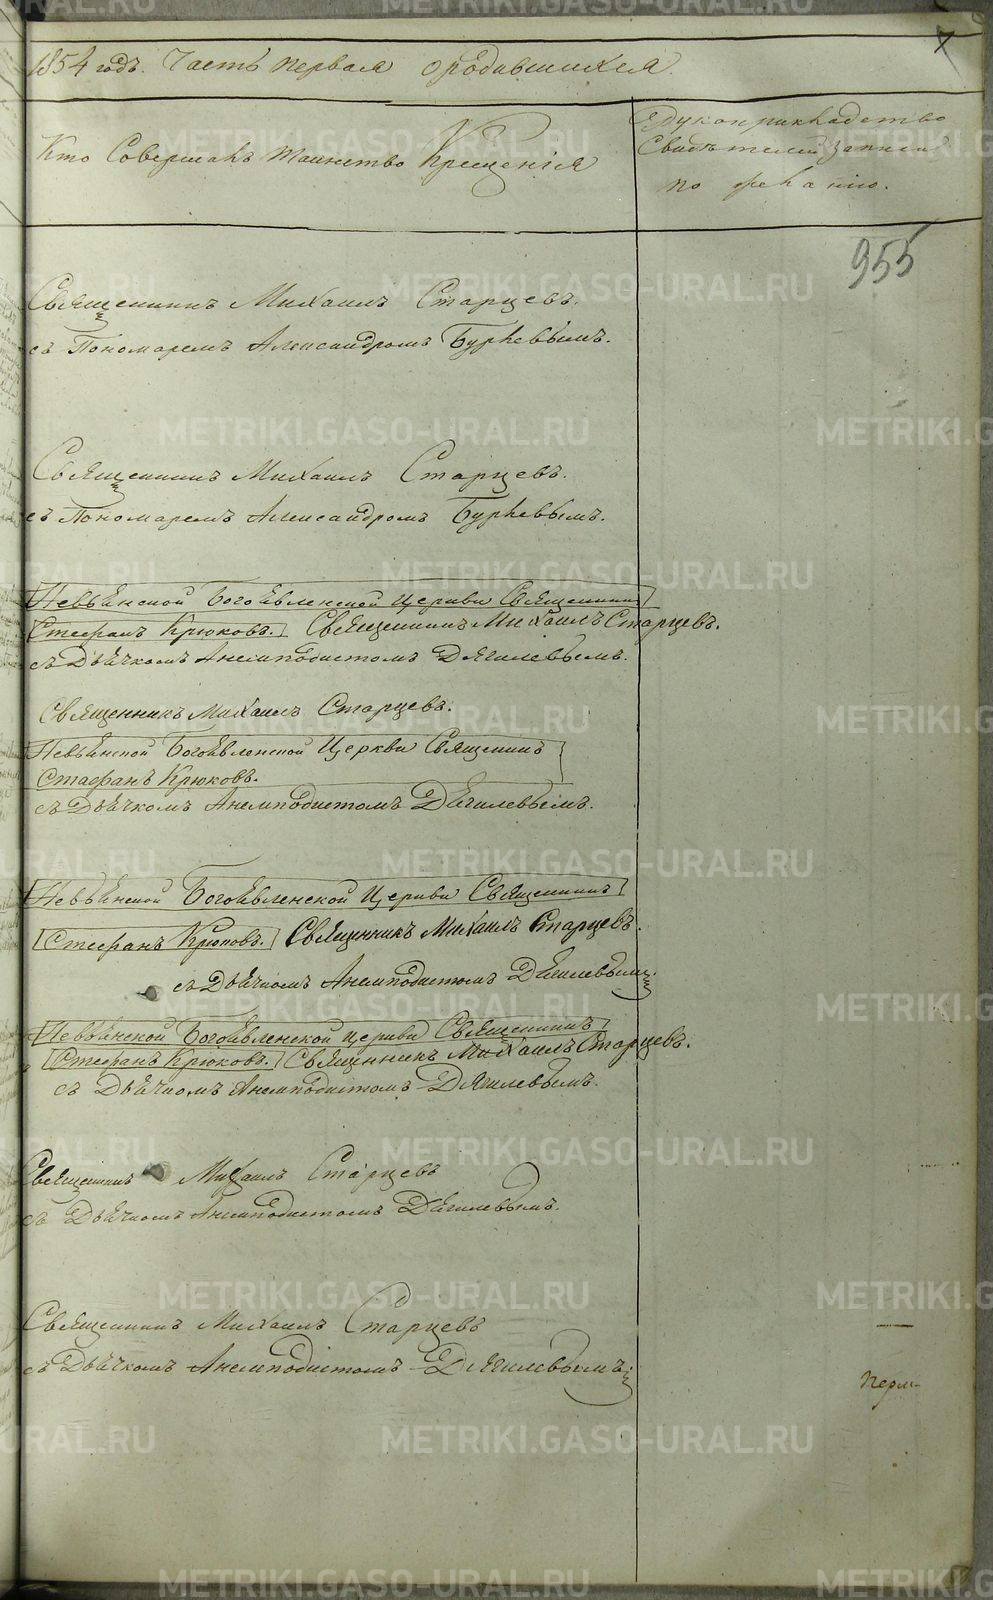 7
1854 годъ. Часть первая о родившихся
Кто Совершалъ таинство Крещенія
Рукоприкладство
Свидѣтелей записи
по желанію.
955
Священникъ Михаилъ Старцевъ.
съ Пономаремъ Александромъ Бурневымъ.
Священникъ Михаилъ Старцевъ.
съ Пономаремъ Александромъ Бурневымъ.
Невьянской Богоявленской Церкви Священникъ
Стефанъ Крюковъ. Священникъ Михаилъ Старцевъ.
съ Дьячкомъ Анемподистомъ Дягилевымъ.
Священникъ Михаилъ Старцевъ.
Невьянской Богоявленской Церкви Священникъ
Стефанъ Крюковъ.
съ Дьячкомъ Анемподистомъ Дягилевымъ.
Невьянской Богоявленской Церкви Священникъ
Стефанъ Крюковъ. Священникъ Михаилъ Старцевъ.
съ Дьячкомъ Анемподистомъ Дягилевымъ.
Невьянской Богоявленской Церкви Священникъ
Стефанъ Крюковъ. Священникъ Михаилъ Старцевъ.
съ Дьячкомъ Анемподистомъ Дягилевымъ.
Священникъ Михаилъ Старцевъ
съ Дьячкомъ Анемподистомъ Дягилевымъ.
Священникъ Михаилъ Старцевъ
съ Дьячкомъ Анемподистомъ Дягилевымъ.
Перм-
METRIKI.GASO-URAL.RU